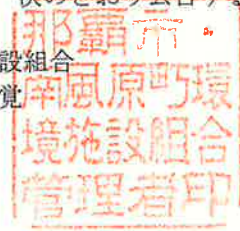 設組合
覚
那覇市・
南風原町環
境施設組合
管理者印